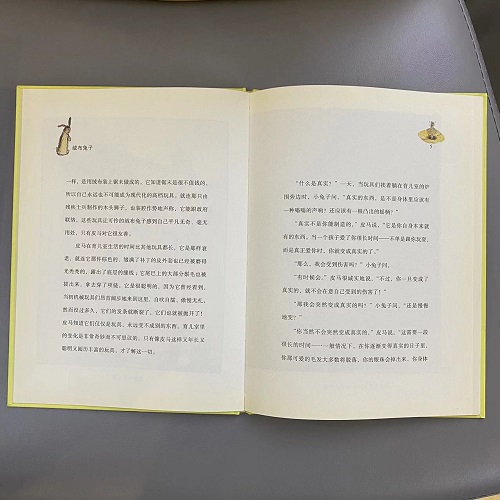 绒布兔子
一样，是用绒布装上锯末做成的。它知道锯末是很不值钱的，
所以自己永远也不可能成为现代化的高档玩具。就连那只由
残疾士兵制作的木头狮子，也装腔作势地声称，它能跟政府
联络。这些玩具让可怜的绒布兔子感到自己平凡无奇，毫无
用处，只有皮马对它很友善。
皮马在育儿室生活的时间比其他玩具都长。它是那样衰
老，就连它那件棕色的、缀满了补丁的皮外套也已经被磨得
光秃秃的，露出了底层的缝线；它尾巴上的大部分都毛也被
拔出来，拿去穿了项链。它是很聪明的，因为它曾经看到，
当初机械玩具们昂首阔步地来到这里，自吹自擂，傲慢无礼，
然而没过多久，它们的发条就断裂了，它们也就被抛弃了！
皮马知道它们仅仅是玩具，永远变不成别的东西。育儿室里
的变化是非常奇妙而不可思议的，只有像皮马这样又年长又
聪明又阅历丰富的玩具，才了解这一切。
5
“什么是真实？”一天，当玩具们挨着躺在育儿室的炉
围旁边时，小兔子问，“真实的东西，是不是身体里应该有
一种嗡嗡的声响？还应该有一根凸出的摇柄？”
“真实不是你能制造的，”皮马说，“它是你自身本来就
有的东西。当一个孩子爱了你很长时间——不单是跟你玩耍，
而是真正爱你时，你就变成真实的了。”
“那么，我会受到伤害吗？”小兔子问。
“有时候会。”皮马很诚实地说，“不过，你一旦变成了
真实的，就不会在意自己受到的伤害了！”
“那我会突然变成真实的吗？”小兔子问，“还是慢慢
地变？”
“你当然不会突然变成真实的。”皮马说，“这需要一段
很长的时间——一般情况下，在你逐渐变得真实的日子里，
你那可爱的毛发大多数将脱落，你的眼珠会掉出来，你身体